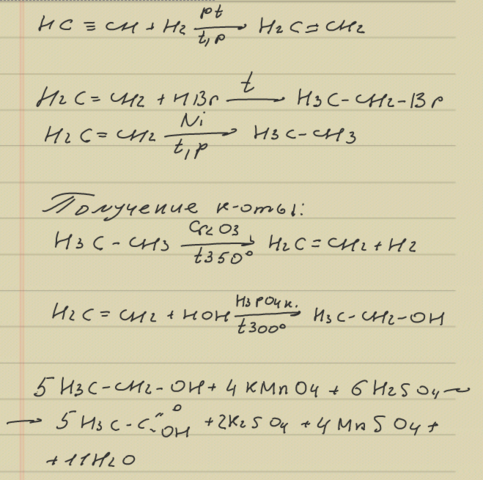 HC ≡ CH + H2 pt t,p → H2C = CH2
H2C = CH2 + HBr t → H3C - CH2 - Br
H2C = CH2 Ni t,p → H3C - CH3
Получение к-оты:
H3C - CH3 Cr2O3 t350° → H2C = CH2 + H2
H2C = CH2 + HOH H3PO4 к. t300° → H3C - CH2 - OH
5 H3C - CH2 - OH + 4 KMnO4 + 6 H2SO4 —
→ 5 H3C - C = O - OH + 2K2SO4 + 4 MnSO4 +
+ 11H2O